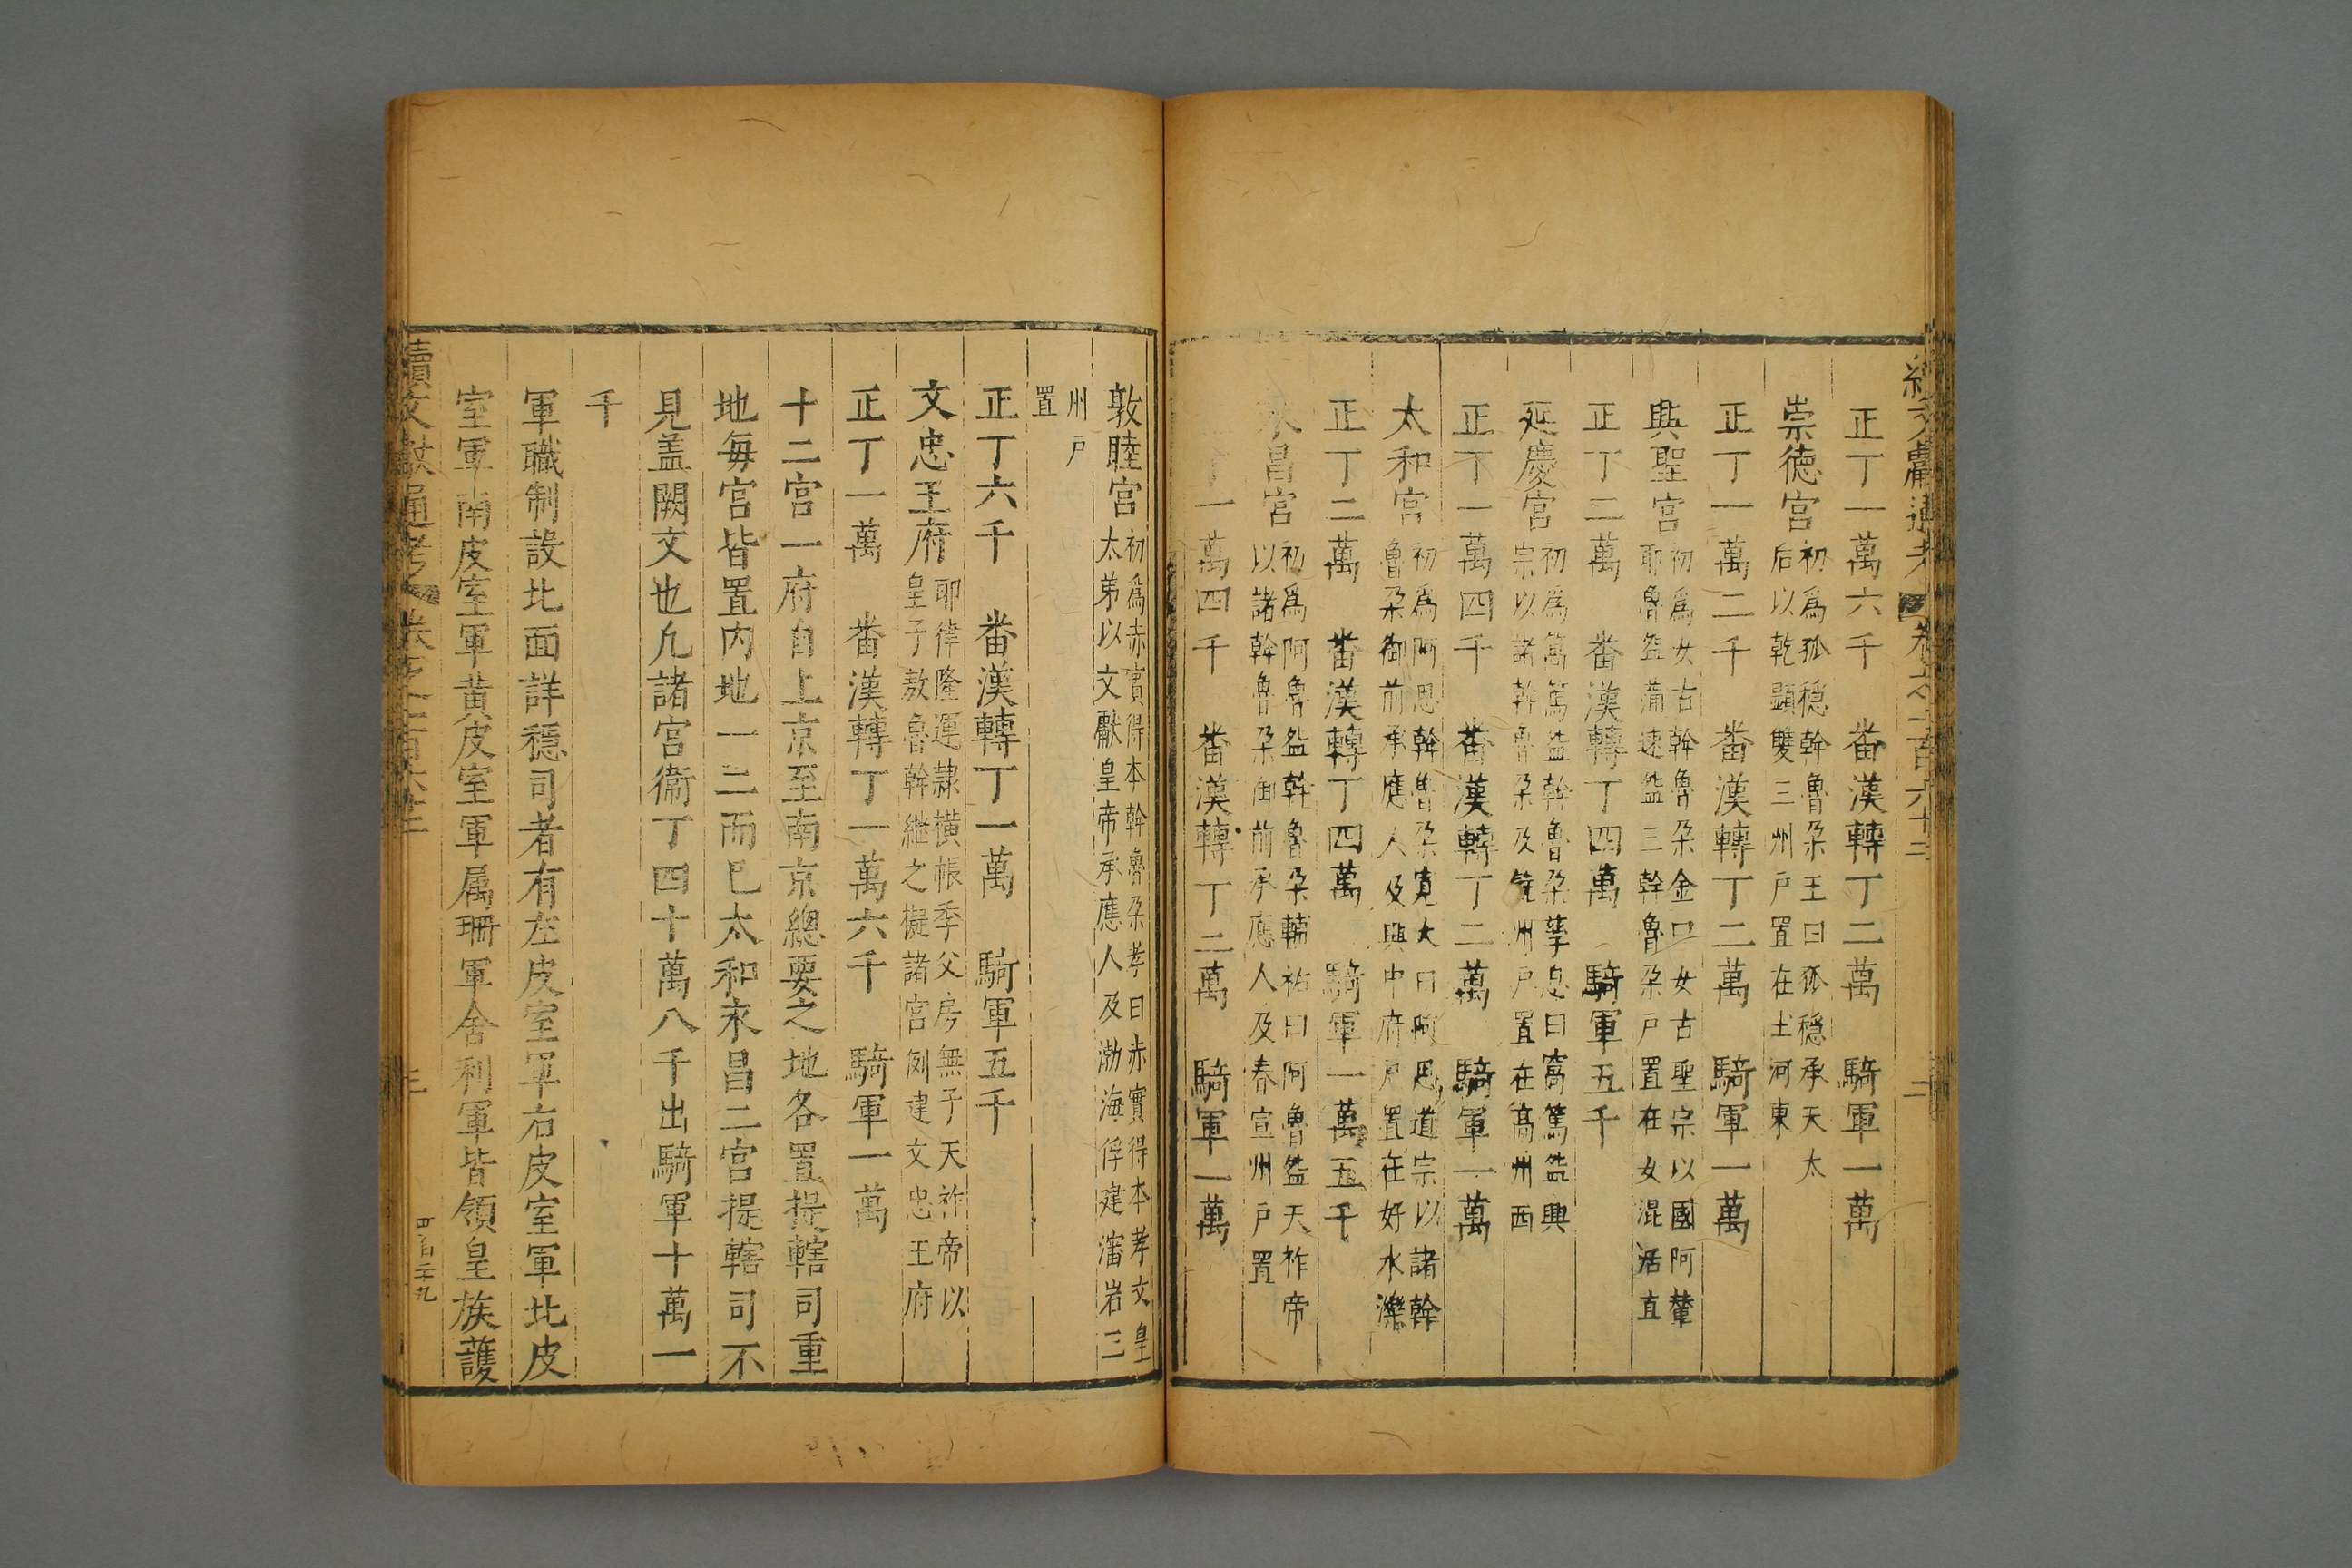 續文獻通考 卷之一百六十二 二
正丁一萬六千 畨漢轉丁二萬 騎軍一萬
崇德宮 初爲孤穩斡魯朶王曰孤穩承天太
后以乾顯雙三州戶置在土河東
正丁一萬二千 畨漢轉丁二萬 騎軍一萬
興聖宮 初爲女古斡魯朶金曰女古聖宗以國阿輦
耶魯盌蒲速盌三斡魯朶戶置在女混活直
正丁二萬 畨漢轉丁四萬 騎軍五千
延慶宮 初爲窩篤盌斡魯朶孳息曰窩篤盌興
宗以諸斡魯朶及饒州戶置在高州西
正丁一萬四千 畨漢轉丁二萬 騎軍一萬
太和宮 初爲阿思斡魯朶寬大曰阿思道宗以諸斡
魯朶御前承應人及興中府戶置在好水濼
正丁二萬 畨漢轉丁四萬 騎軍一萬五千
永昌宮 初爲阿魯盌斡魯朶輔祐曰阿魯盌天祚帝
以諸斡魯朶御前承應人及春宣州戶置
丁一萬四千 畨漢轉丁二萬 騎軍一萬
敦睦宮 初爲赤實得本斡魯朶孝曰赤實得本孝文皇
太弟以文獻皇帝承應人及渤海俘建瀋岩三
州戶
置
正丁六千 畨漢轉丁一萬 騎軍五千
文忠王府 耶律隆運隷橫帳季父房無子天祚帝以
皇子敖魯斡繼之擬諸宮例建文忠王府
正丁一萬 畨漢轉丁一萬六千 騎軍一萬
十二宮一府自上京至南京總要之地各置提轄司重
地每宮皆置内地一二而已太和永昌二宮提轄司不
見盖闕文也凢諸宮衞丁四十萬八千出騎軍十萬一
千
軍職制設北面詳穩司者有左皮室軍右皮室軍北皮
室軍南皮室軍黄皮室軍属珊軍舍利軍皆領皇族護
續文獻通考 卷之一百六十二 三 四百二十九